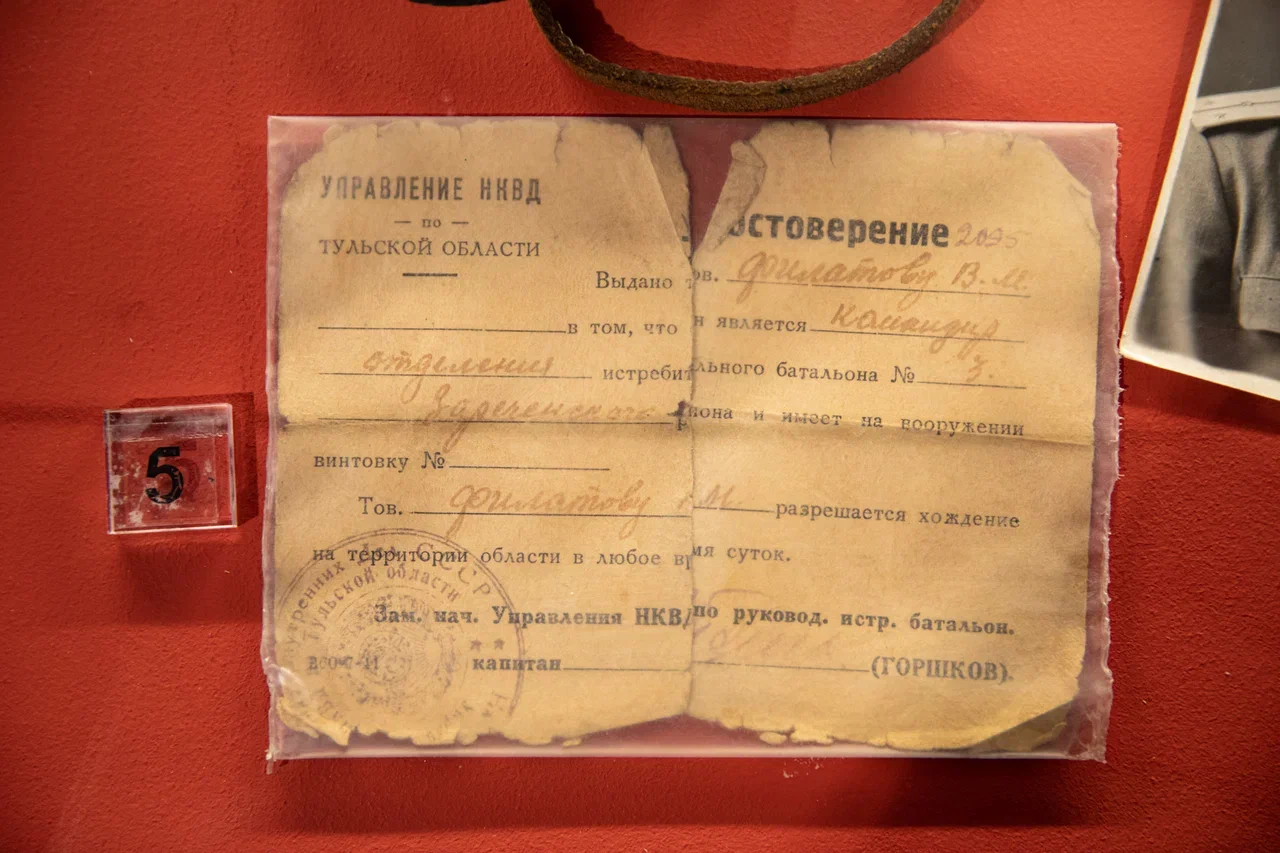 5
УПРАВЛЕНИЕ НКВД
— по —
ТУЛЬСКОЙ ОБЛАСТИ
остоверение 2095
Выдано ов. Филатову В. М.
в том, что н является Командир
отделения истребит льного батальона № 3.
Зареченского р иона и имеет на вооружении
винтовку №
Тов. Филатову М. разрешается хождение
на территории области в любое вр мя суток.
Зам. нач. Управления НКВД по руковод. истр. батальон.
капитан (ГОРШКОВ).
утренних Дел СССР
Тульской области